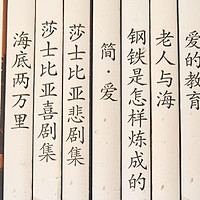 海底两万里
莎士比亚喜剧集
莎士比亚悲剧集
简·爱
钢铁是怎样炼成的
老人与海
爱的教育